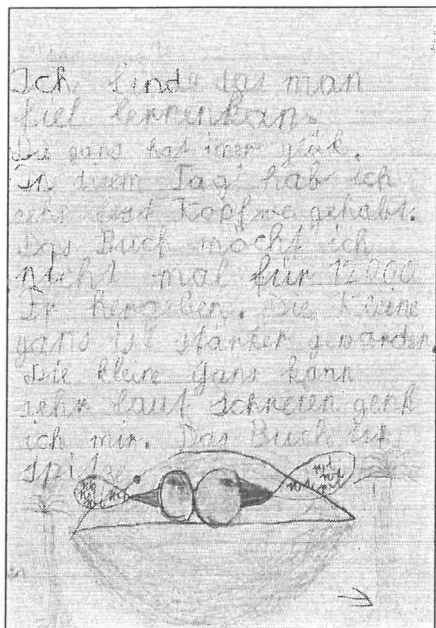 Ich find das man
fiel lernenkan.
Die gans hat imer glük.
In disem Tag hab ich
sehr fest Kopfwe gehabt.
Das Buch möcht ich
nicht mal für 12000
Fr hergeben. Die kleine
gans ist stärker geworden.
Die kleine Gans kann
sehr laut schreien genk
ich mir. Das Buch ist
spitze